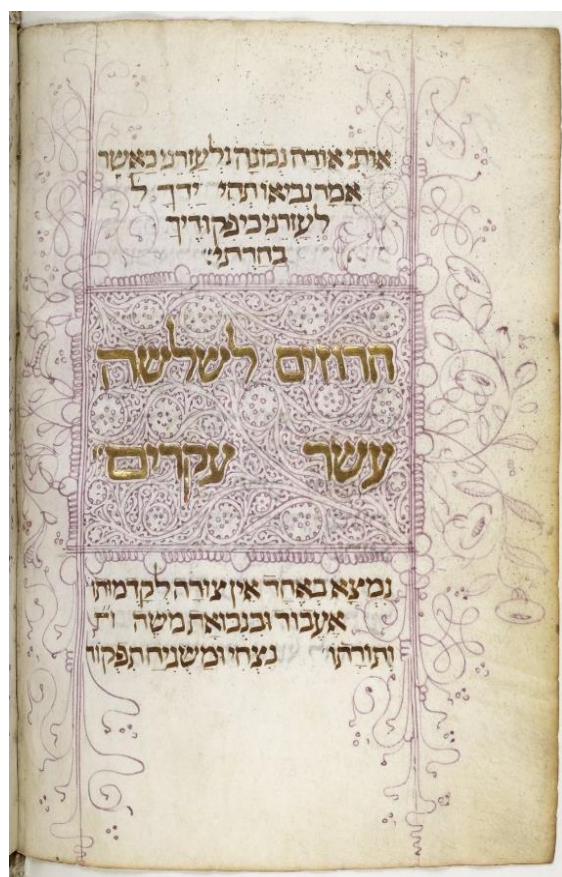 אותי אודה נכונה ולעזרני כאשר
אמר נביאו תהי ידך ל
לעזרני כי פקודיך
בחרתי׃
חרוזים לשלשה
עשר עקרים״
נמצא כאחד אין צורה לקדמותו
אעבור ובנבואת משה
ותורתו נצחי ומשגיח תפקוד